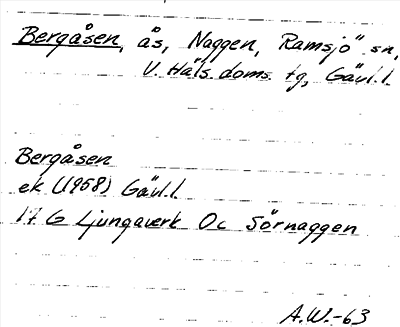 Bergåsen, ås, Naggen, Ramsjö sn,
V. Häls. doms. tg, Gävl.l.
Bergåsen
ek (1958) Gävl.l.
17 G Ljungaverk 0c Sörnaggen
A.W.-63